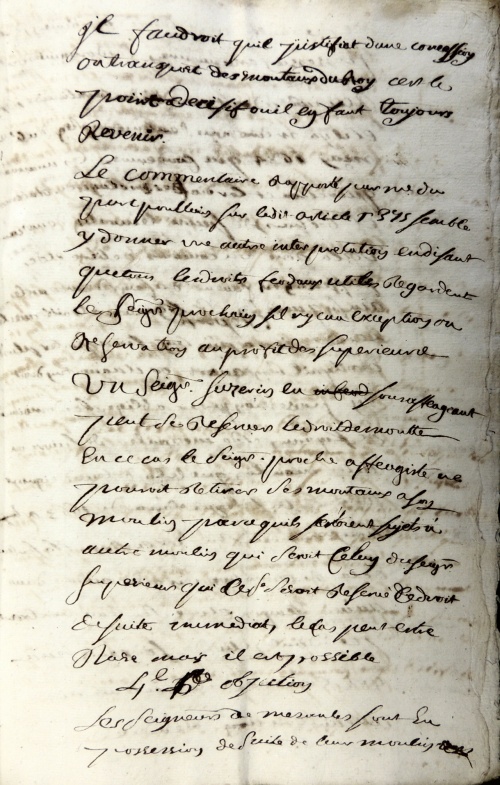 jl faudroit quil justifiat dune concession
ou transport des moutaux du Roy cest le
point decisif ou il en faut toujours
Revenir.
Le commentaire Rapporté par mr du
parc poullain sur ledit article 375 semble
y donner une autre interpretation en disant
que tous les droits feodaux utiles Regardent
les seigrs prochains sil ny en a exception ou
Reservation au profit des superieurs
Un seigr suzerin en sous affeageant
peut se Reserver le droit de moutte
En ce cas le seigr proche affeagiste ne
pouroit Retirer ses moutaux a son
moulin parce quils seroient sujets a
autre moulin qui seroit Celuy du seigr
superieur qui Ce seroit Reservé Ce droit
de suite immediat, le cas peut estre
Rare mais il est possible
4e objection
Les seigneurs de mesnules sont En
possession de suite de leur moulin